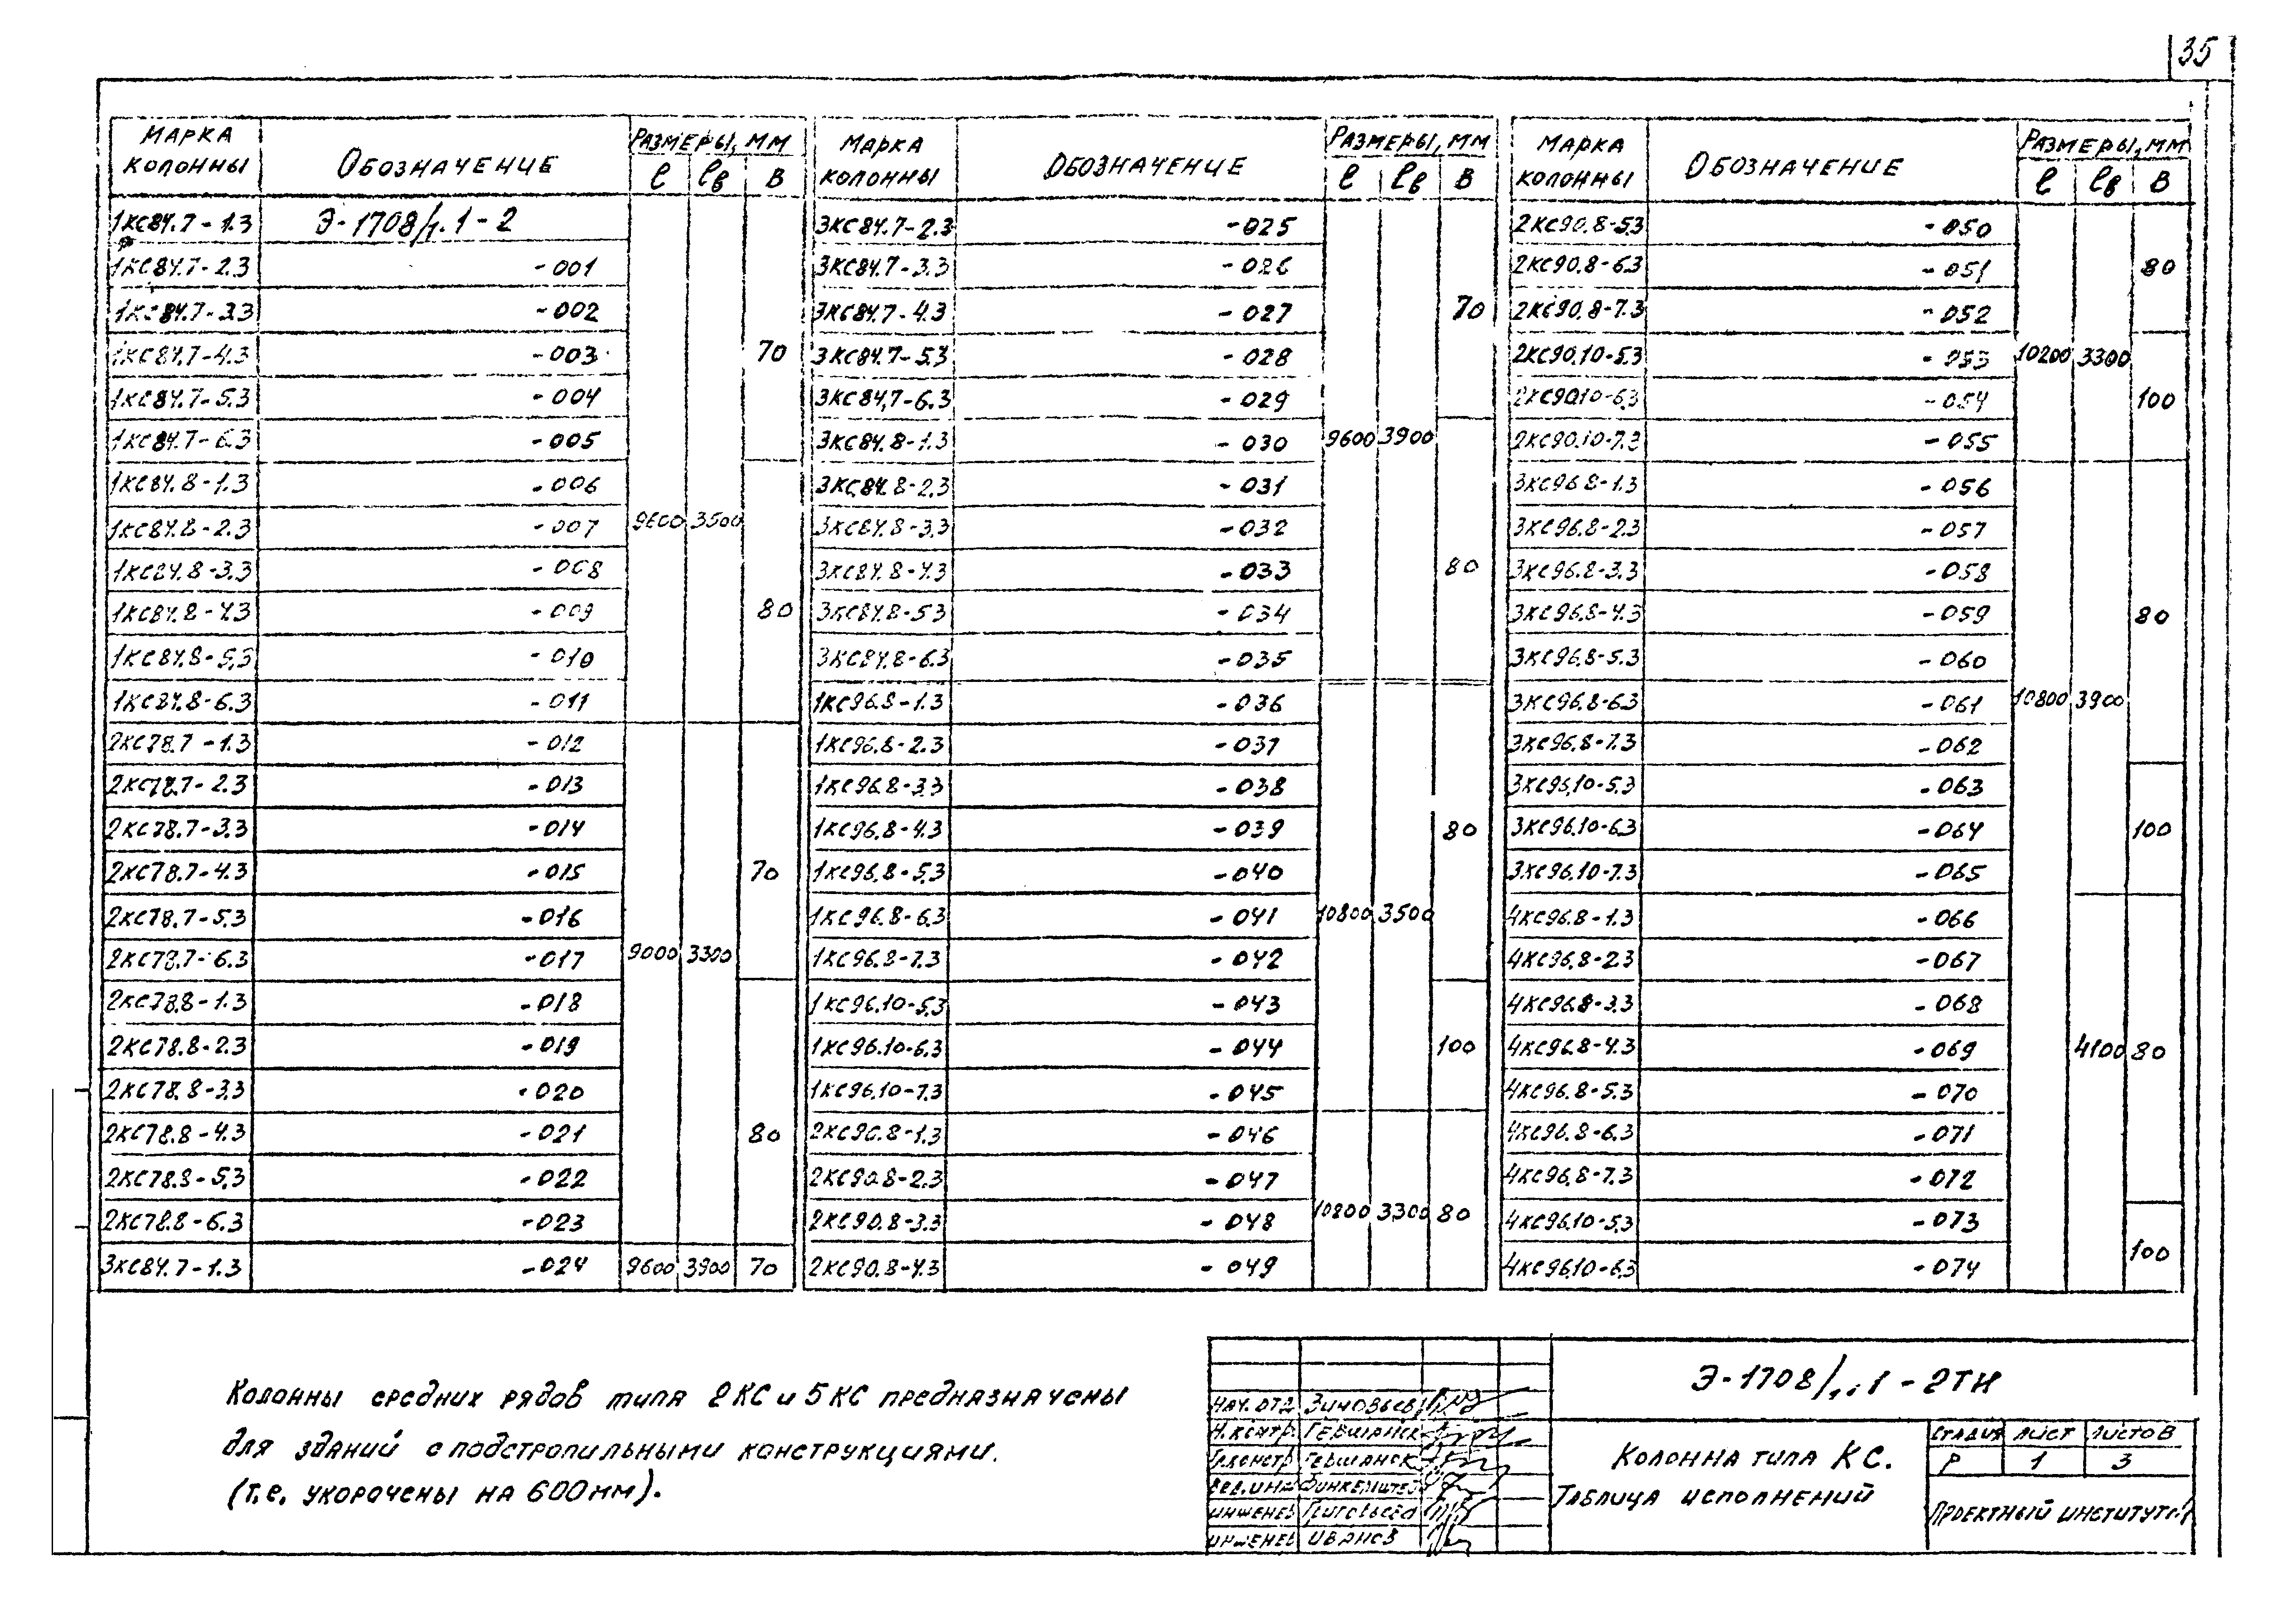 35
МАРКА КОЛОННЫ ОБОЗНАЧЕНИЕ РАЗМЕРЫ, ММ ℓ ℓв В
1КС84.7-1.3 Э-1708/1.1-2
1КС84.7-2.3 -001
1КС84.7-3.3 -002
1КС84.7-4.3 -003 70
1КС84.7-5.3 -004
1КС84.7-6.3 -005
1КС84.8-1.3 -006
1КС84.8-2.3 -007 9600 3500
1КС84.8-3.3 -008
1КС84.8-4.3 -009 80
1КС84.8-5.3 -010
1КС84.8-6.3 -011
2КС78.7-1.3 -012
2КС78.7-2.3 -013
2КС78.7-3.3 -014
2КС78.7-4.3 -015 70
2КС78.7-5.3 -016
2КС78.7-6.3 -017 9000 3300
2КС78.8-1.3 -018
2КС78.8-2.3 -019
2КС78.8-3.3 -020
2КС78.8-4.3 -021 80
2КС78.8-5.3 -022
2КС78.8-6.3 -023
3КС84.7-1.3 -024 9600 3900 70
МАРКА КОЛОННЫ ОБОЗНАЧЕНИЕ РАЗМЕРЫ, ММ ℓ ℓв В
3КС84.7-2.3 -025
3КС84.7-3.3 -026
3КС84.7-4.3 -027 70
3КС84.7-5.3 -028
3КС84.7-6.3 -029
3КС84.8-1.3 -030 9600 3900
3КС84.8-2.3 -031
3КС84.8-3.3 -032
3КС84.8-4.3 -033 80
3КС84.8-5.3 -034
3КС84.8-6.3 -035
1КС96.8-1.3 -036
1КС96.8-2.3 -037
1КС96.8-3.3 -038
1КС96.8-4.3 -039 80
1КС96.8-5.3 -040
1КС96.8-6.3 -041 10800 3500
1КС96.8-7.3 -042
1КС96.10-5.3 -043
1КС96.10-6.3 -044 100
1КС96.10-7.3 -045
2КС90.8-1.3 -046
2КС90.8-2.3 -047
2КС90.8-3.3 -048 10800 3300 80
2КС90.8-4.3 -049
МАРКА КОЛОННЫ ОБОЗНАЧЕНИЕ РАЗМЕРЫ, ММ ℓ ℓв В
2КС90.8-5.3 -050
2КС90.8-6.3 -051 80
2КС90.8-7.3 -052
2КС90.10-5.3 -053 10200 3300
2КС90.10-6.3 -054 100
2КС90.10-7.3 -055
3КС96.8-1.3 -056
3КС96.8-2.3 -057
3КС96.8-3.3 -058
3КС96.8-4.3 -059 80
3КС96.8-5.3 -060
3КС96.8-6.3 -061 10800 3900
3КС96.8-7.3 -062
3КС96.10-5.3 -063
3КС96.10-6.3 -064 100
3КС96.10-7.3 -065
4КС96.8-1.3 -066
4КС96.8-2.3 -067
4КС96.8-3.3 -068
4КС96.8-4.3 -069 4100 80
4КС96.8-5.3 -070
4КС96.8-6.3 -071
4КС96.8-7.3 -072
4КС96.10-5.3 -073
4КС96.10-6.3 -074 100
Колонны средних рядов типа 2КС и 5КС предназначены
для зданий с подстропильными конструкциями.
(т.е. укорочены на 600мм).
Э-1708/1.1-2ТИ
НАЧ. ОТД ЗИНОВЬЕВ
Н.КОНТР ГЕРШАНСК
ГЛ.КОНСТР ГЕРШАНСК
ВЕД.ИНЖ ФИНКЕЛШТЕЙ
ИНЖЕНЕР ГРИГОРЬЕВА
ИНЖЕНЕР ИВАНОВ
КОЛОННА ТИПА КС.
ТАБЛИЦА ИСПОЛНЕНИЙ
СТАДИЯ ЛИСТ ЛИСТОВ
Р 1 3
ПРОЕКТНЫЙ ИНСТИТУТ №1